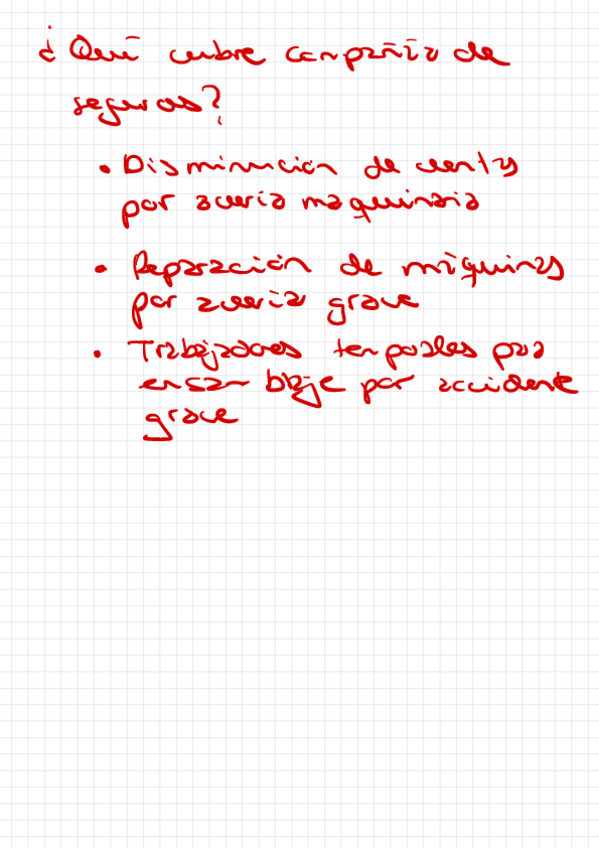 ¿Qué cubre compañía de
seguros?
• Disminución de ventas
por avería maquinaria
• Reparación de máquinas
por avería grave
• Trabajadores temporales para
ensamblaje por accidente
grave